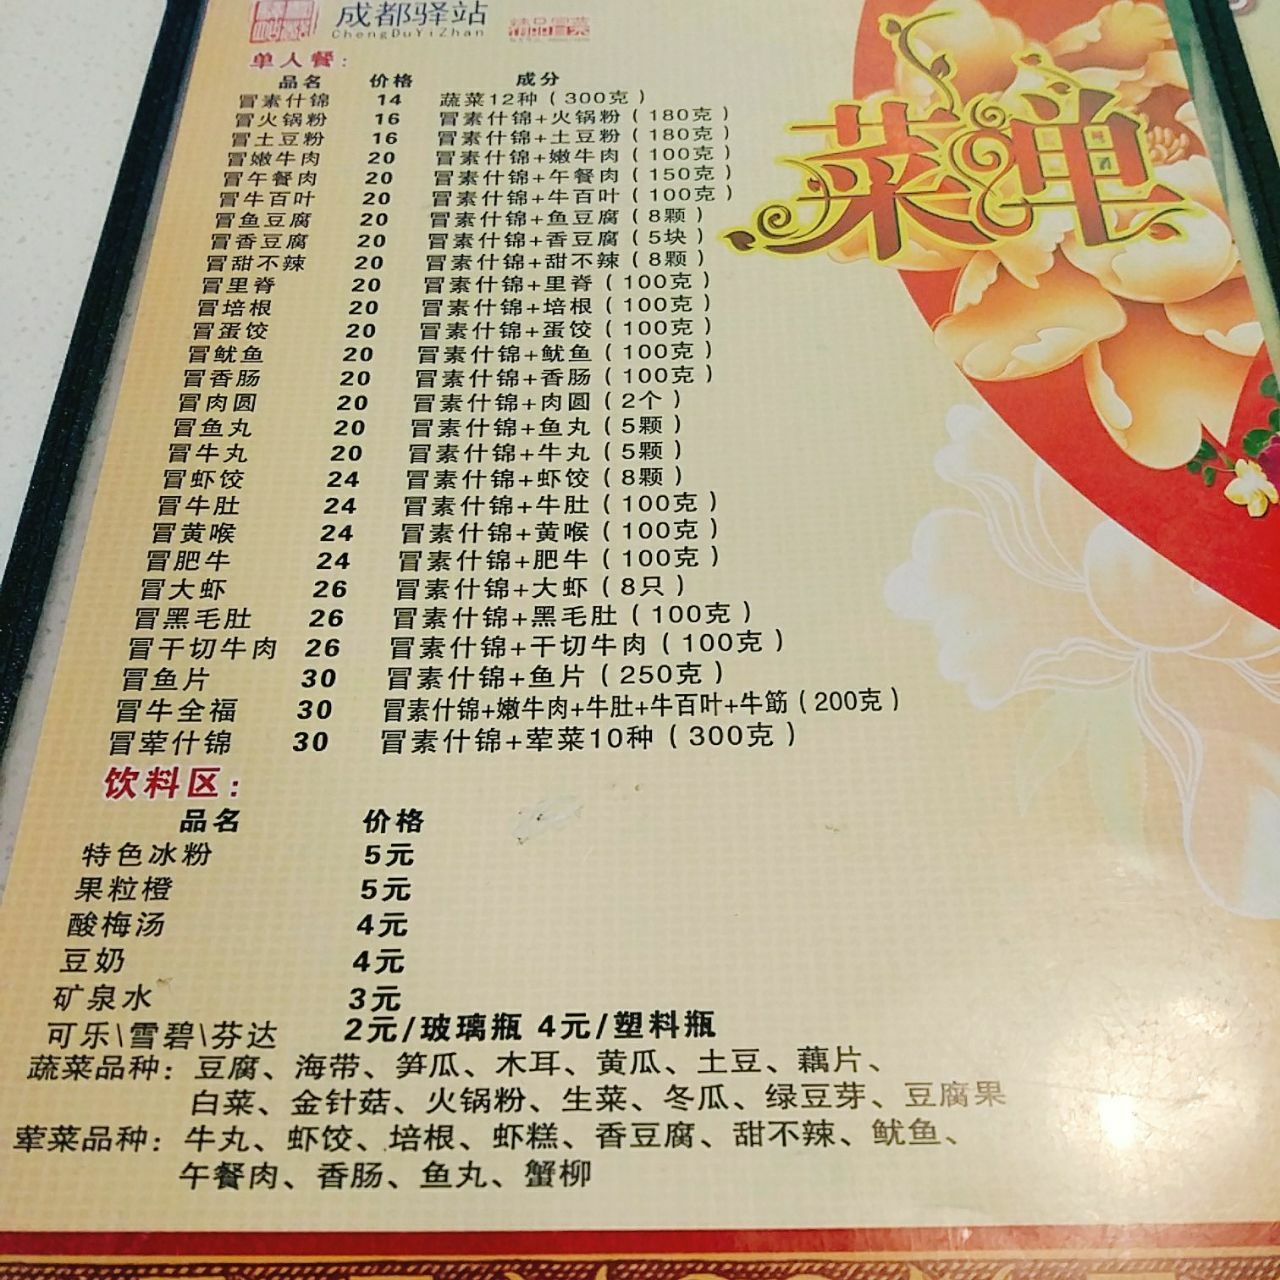 成都驿站
ChengDuYiZhan
单人餐：
品名 价格 成分
冒素什锦 14 蔬菜12种（300克）
冒火锅粉 16 冒素什锦+火锅粉（180克）
冒土豆粉 16 冒素什锦+土豆粉（180克）
冒嫩牛肉 20 冒素什锦+嫩牛肉（100克）
冒午餐肉 20 冒素什锦+午餐肉（150克）
冒牛百叶 20 冒素什锦+牛百叶（100克）
冒鱼豆腐 20 冒素什锦+鱼豆腐（8颗）
冒香豆腐 20 冒素什锦+香豆腐（5块）
冒甜不辣 20 冒素什锦+甜不辣（8颗）
冒里脊 20 冒素什锦+里脊（100克）
冒培根 20 冒素什锦+培根（100克）
冒蛋饺 20 冒素什锦+蛋饺（100克）
冒鱿鱼 20 冒素什锦+鱿鱼（100克）
冒香肠 20 冒素什锦+香肠（100克）
冒肉圆 20 冒素什锦+肉圆（2个）
冒鱼丸 20 冒素什锦+鱼丸（5颗）
冒牛丸 20 冒素什锦+牛丸（5颗）
冒虾饺 24 冒素什锦+虾饺（8颗）
冒牛肚 24 冒素什锦+牛肚（100克）
冒黄喉 24 冒素什锦+黄喉（100克）
冒肥牛 24 冒素什锦+肥牛（100克）
冒大虾 26 冒素什锦+大虾（8只）
冒黑毛肚 26 冒素什锦+黑毛肚（100克）
冒干切牛肉 26 冒素什锦+干切牛肉（100克）
冒鱼片 30 冒素什锦+鱼片（250克）
冒牛全福 30 冒素什锦+嫩牛肉+牛肚+牛百叶+牛筋（200克）
冒荤什锦 30 冒素什锦+荤菜10种（300克）
菜单
饮料区：
品名 价格
特色冰粉 5元
果粒橙 5元
酸梅汤 4元
豆奶 4元
矿泉水 3元
可乐\雪碧\芬达 2元/玻璃瓶 4元/塑料瓶
蔬菜品种：豆腐、海带、笋瓜、木耳、黄瓜、土豆、藕片、
白菜、金针菇、火锅粉、生菜、冬瓜、绿豆芽、豆腐果
荤菜品种：牛丸、虾饺、培根、虾糕、香豆腐、甜不辣、鱿鱼、
午餐肉、香肠、鱼丸、蟹柳